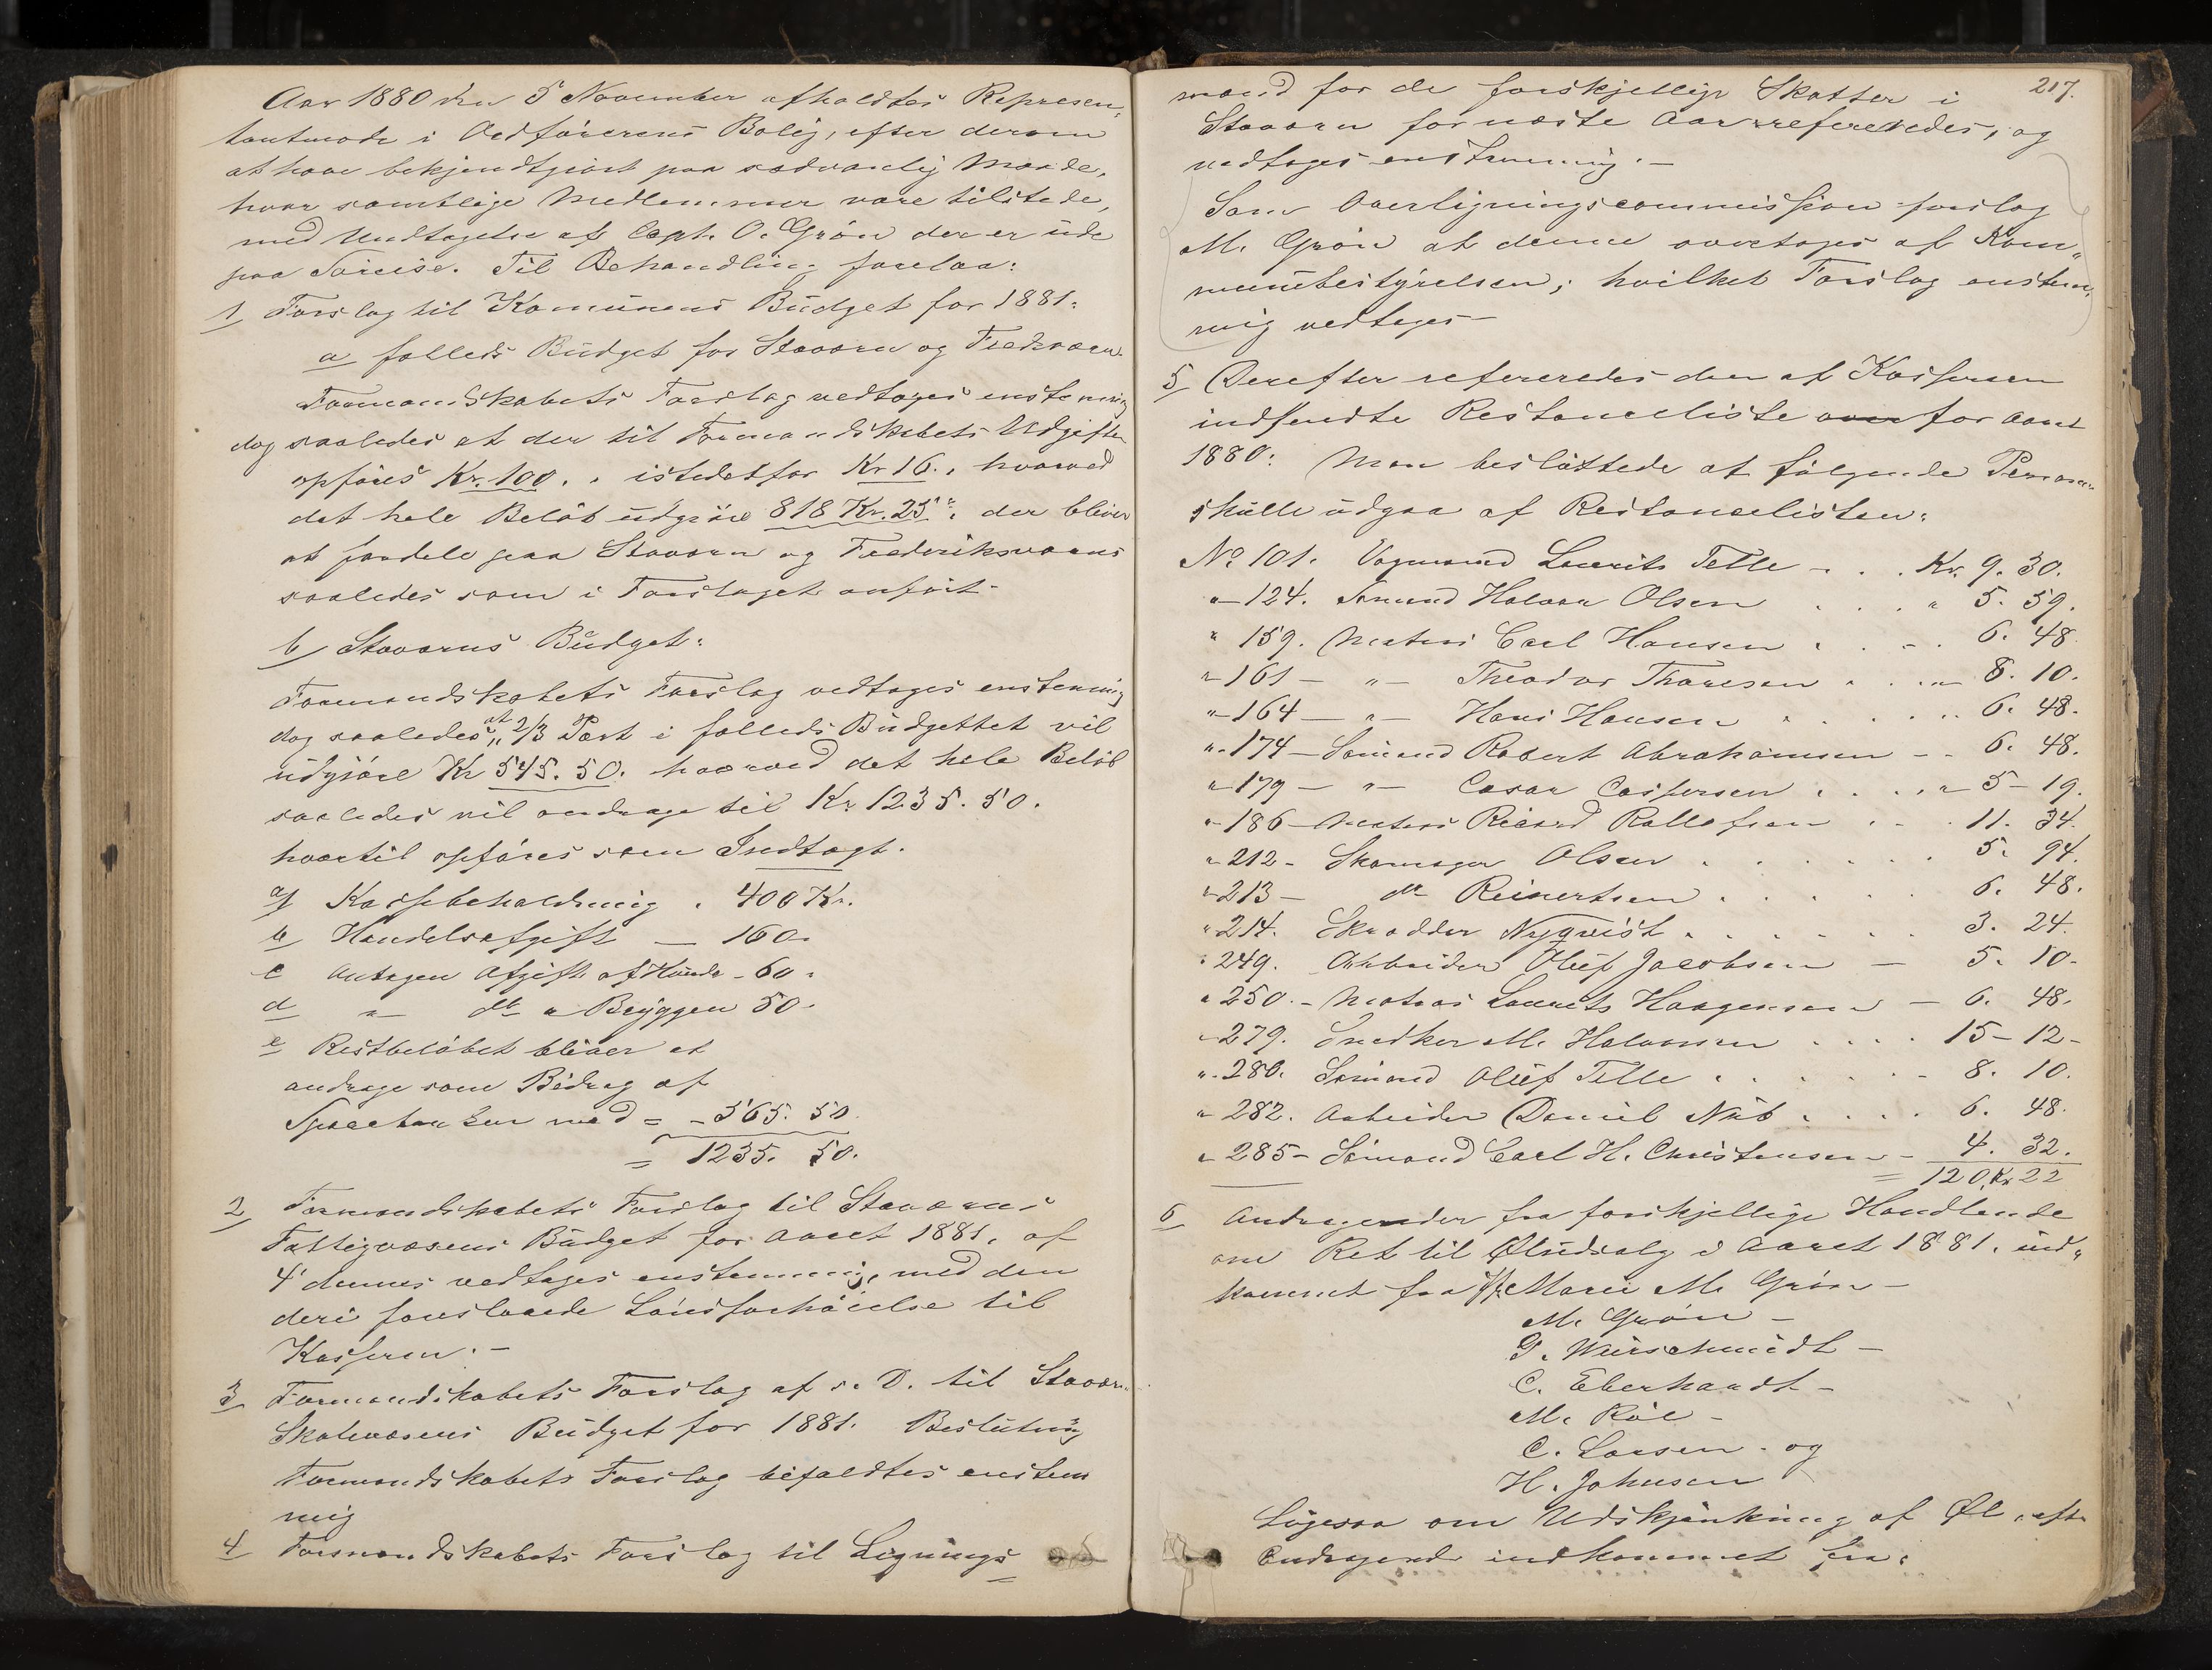 Aar 1880 den 5 November afholdtes Represen„
tantmøde i Ordførerens Bolig, efter derom
at have bekjendtgjort paa sædvanlig Maade,
hvor samtlige Medlemmer vare tilstede,
med Undtagelse af Capt. O. Grøn der er ude
paa Søreise. Til Behandling forelaa:
1/ Forslag til Komünens Büdget for 1881:
a fælleds Büdget for Staværn og Fredsværn.
Formandskabets Forslag vedtages enstemmig
dog saaledes at der til Formandskabets Udgifter
opføres Kr. 100. . istedetfor Kr 16. , hvorved
det hele Beløb üdgjør 818 Kr. 25 , der bliver
at fordele paa Staværn og Frederiksværns
saaledes som i Forslaget anført.
b/ Staværns Büdget:
Formandskabets Forslag vedtages enstemmig
dog saaledes, at 2/3 Part i fælleds Büdgettet vil
üdgjøre Kr 545. 50. hvorved det hele Beløb
saaledes vil andrage til Kr 1235. 50.
hvortil opføres som Indtægt.
a/ Kassebeholdning . 400 Kr.
b Handelsafgift — 160.
c Antagen Afgift af Hünde - 60 .
d „— do „ Bryggen 50.
e Restbeløbet bliver at
andrage som Bidrag af
Sparebanken med = - 565. 50
= 1235. 50.
2/ Formandskabets Forslag til Staværns
Fattigvæsens Büdget for Aaret 1881, af
4 dennes vedtages enstemmig, med den
deri foreslaaede Lønsforhøielse til
Kasseren. —
3/ Formandskabets Forslag af s. D. til Staværns
Skolevæsens Büdget for 1881. Beslütning
Formandskabets Forslag bifaldtes enstem
mig
4/ Formandskabets Forslag til Lignings
217.
mænd for de forskjellige Skatter i
Staværn for næste Aar refereredes, og
vedtages enstemmig. —
Som Overligningscommission forslog
M. Grøn at denne overtages af Kom„
münebestyrelsen; hvilket Forslag enstem„
mig vedtages —
5/ Derefter refereredes den af Kasseren
indsendte Restanceliste over for Aaret
1880: Man beslüttede at følgende Personer
skülle üdgaa af Restancelisten:
No 101. Vognmand Lauritz Telle - . . Kr. 9. 30.
„— 124. Sømand Halvor Olsen . . . „ 5. 59.
„ 159. Matros Carl Hansen . . - . 6. 48.
„— 161 — „— Theodor Thoresen . . „— 8. 10.
„— 164 — „— Hans Hansen . . . . „ 6. 48.
„- 174 — Sømand Robert Abrahamsen - - 6. 48.
„- 179 — „— Casar Caspersen . . . „- 5 - 19.
„- 186 - Matros Ricard Rolløfsen . - . 11. 34.
„ 212 - Skomager Olsen . . . . . . 5. 94.
„ 213 — do Reinertsen . . . . . 6. 48.
„ 214. Skrædder Nyqvist . . . . . . 3. 24.
„ 249. Arbeider Olüf Jacobsen — 5. 10.
„ 250. - Matros Laurits Haagensen — 6. 48.
„ 279. Snedker M. Halvorsen . . . . 15 - 12 -
„ 280. Sømand Olüf Telle . . . . - 8. 10.
„ 282. Arbeider Daniel Nüb . . . . 6. 48.
„ 285 - Sømand Carl H. Christensen - 4. 32.
= 120 Kr 22
6/ Andragender fra forskjellige Handlende
om Ret til Ølüdsalg i Aaret 1881. ind„
kommet fra Marie M. Grøn —
M. Grøn —
D. Würschmidt —
C. Eberhardt —
M. Röe —
C. Larsen - og
H. Johnsen
Ligesaa om Udskjænkning af Øl, efter
Andragende indkommet fra: